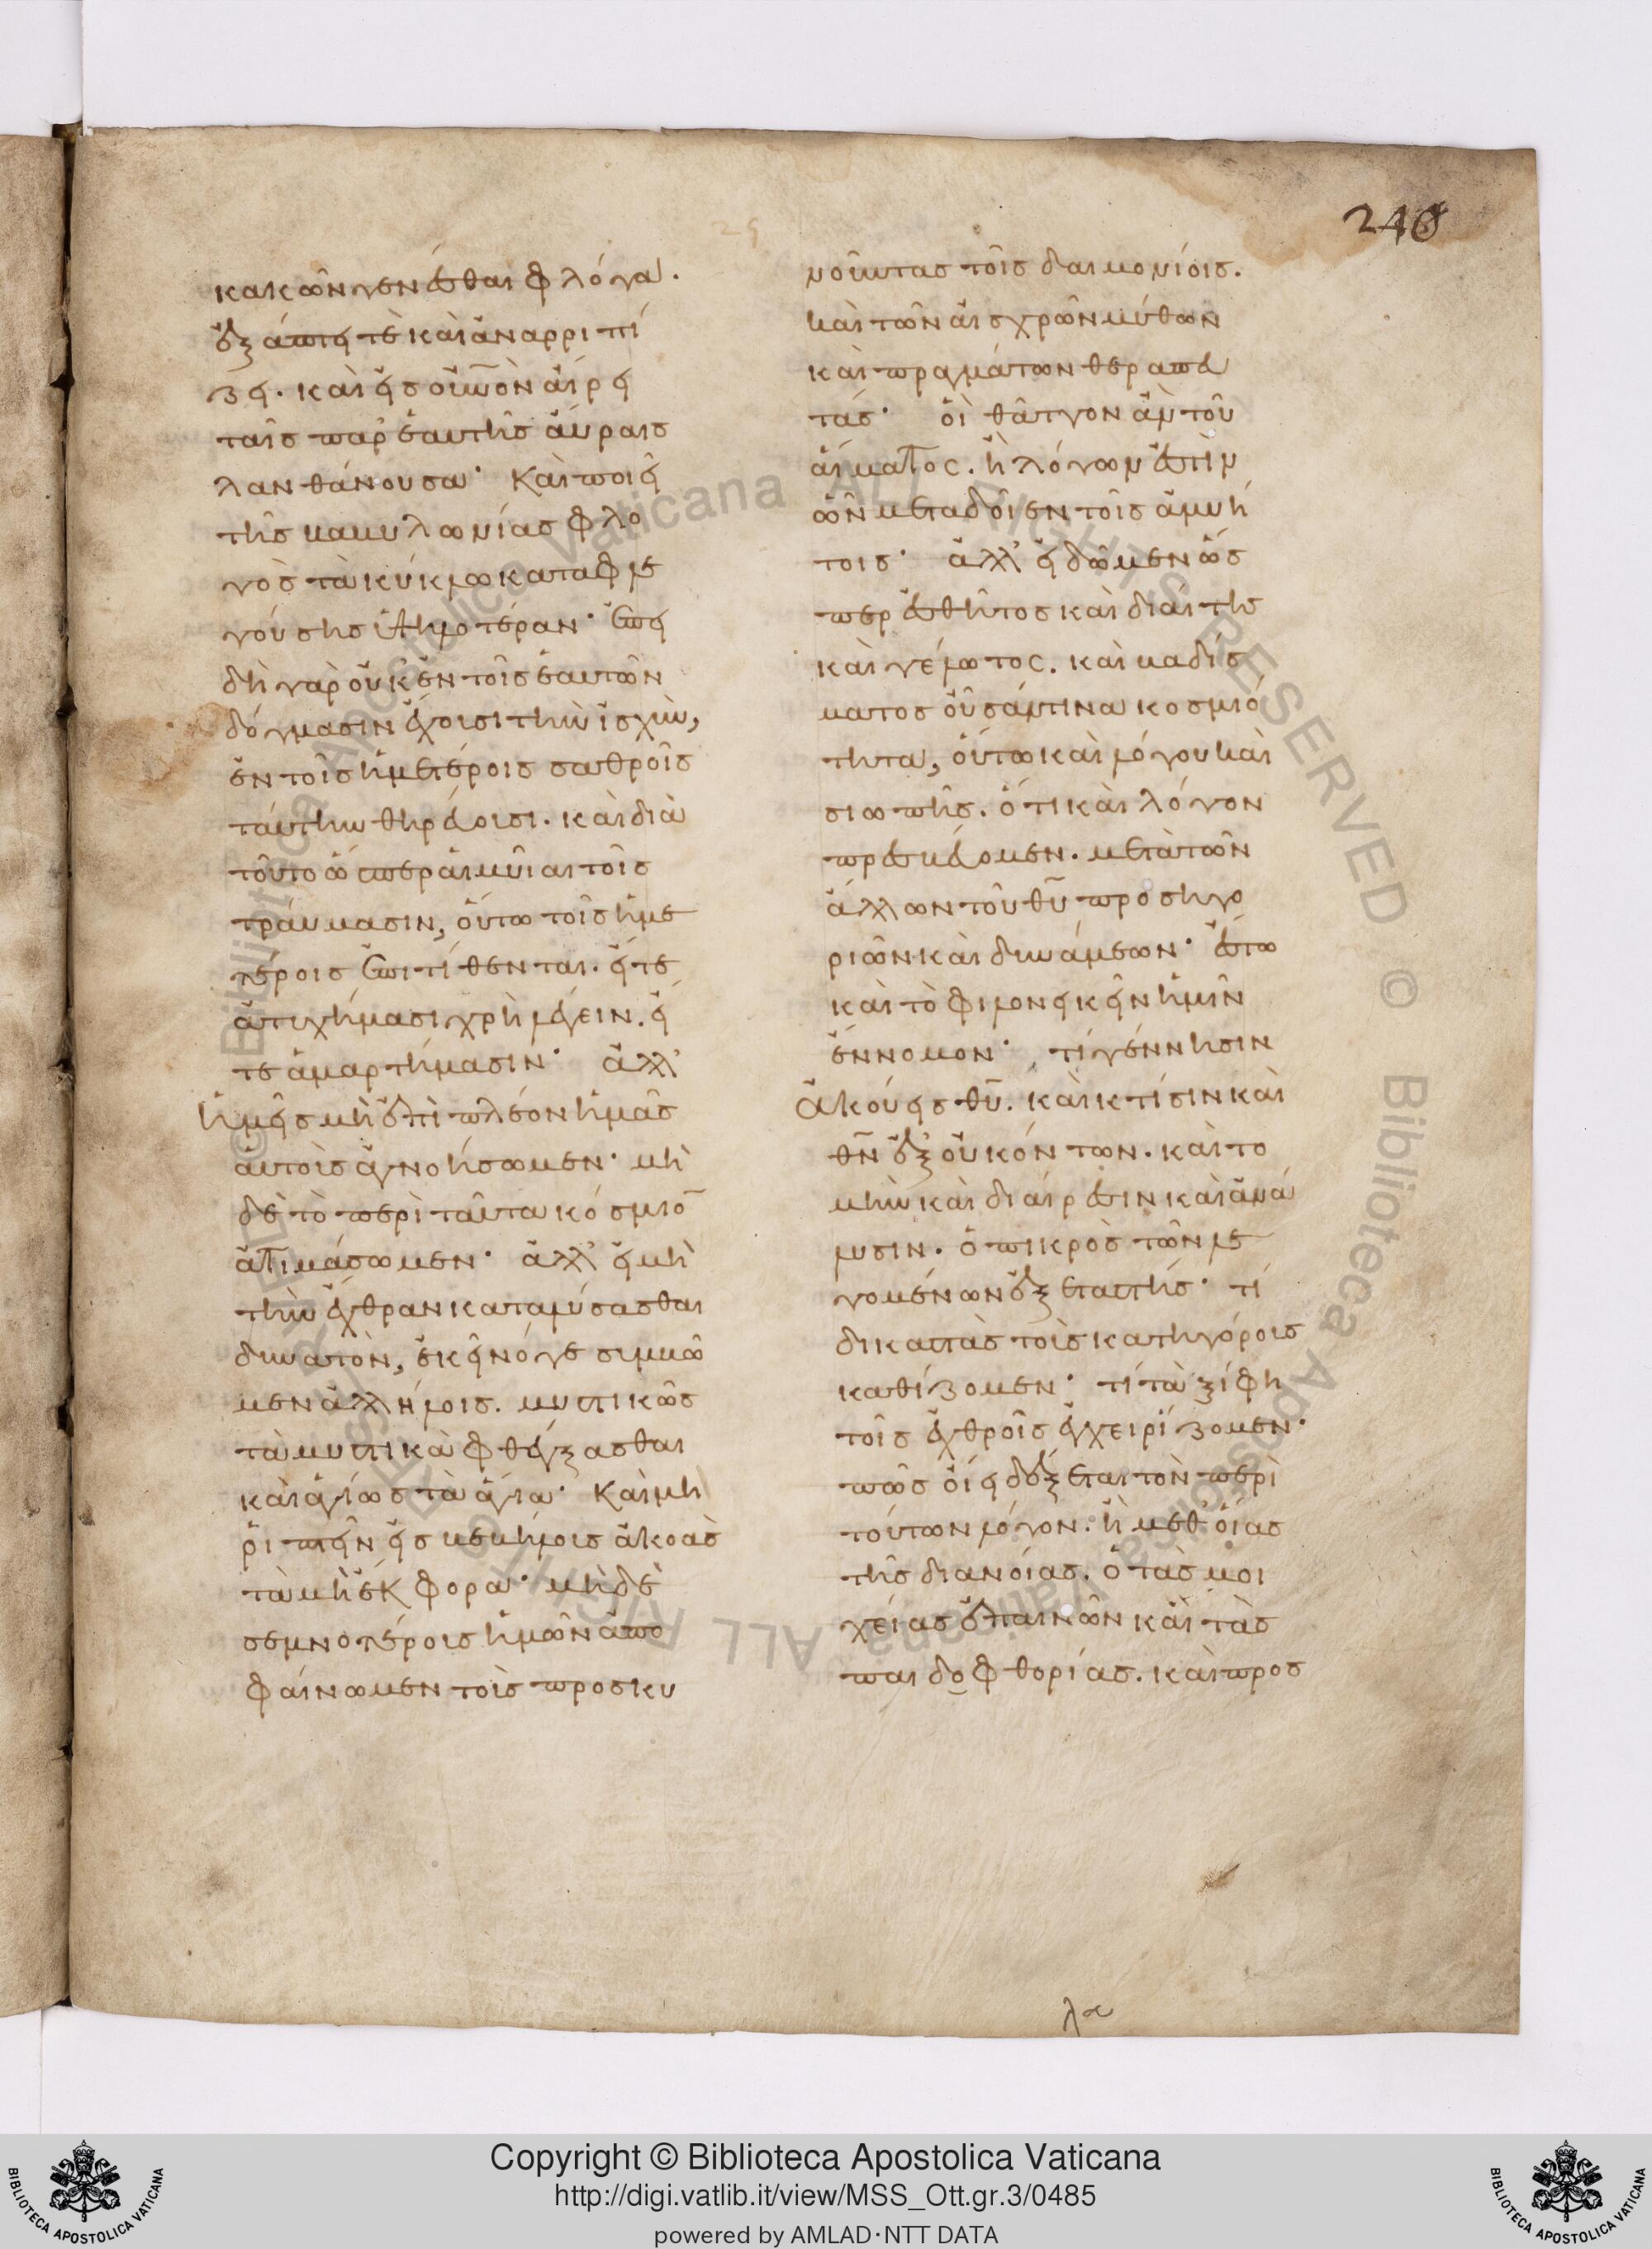 κακῶν γενέσθαι φλόγα.
ἐξάπτει τὲ καὶ ἀναρριπί
ζει. καὶ εἰς οὐνὸν αἴρει
ταῖς παρ' ἑαυτῆς αὔραις
λανθάνουσα· Καὶ ποιεῖ
τῆς βαβυλωνίας φλο
γὸς τὰ κύκλω καταφλε
γούσης ὑψηλοτέραν· Ἐπει
δὴ γὰρ οὐκ ἐν τοῖς ἑαυτῶν
δόγμασιν ἔχουσι τὴν ἰσχὺν,
ἐν τοῖς ἡμετέροις σαθροῖς
ταύτην θηρεύουσι. καὶ διὰ
τοῦτο ὥσπερ αἱ μυῖαι τοῖς
τραύμασιν, οὕτω τοῖς ἡμε
τέροις ἐπιτίθενται. εἴτε
ἀτυχήμασι χρὴ λέγειν. εἴ
τε ἁμαρτήμασιν· ἀλλ'
ἡμεῖς μὴ ἐπὶ πλέον ἡμᾶς
ἀυτοὺς ἀγνοήσωμεν· μὴ
δὲ τὸ περὶ ταῦτα κόσμιο̅
ἀτιμάσωμεν· ἀλλ' εἰ μὴ
τὴν ἔχθραν καταλύσασθαι
δυνατὸν, ἐκεῖνό γε συμβῶ
μεν ἀλλήλοις. μυστικῶς
τὰ μυστικὰ φθέγξασθαι
καὶ ἁγίως τὰ ἅγια· Καὶ μὴ
ῥίπτειν εἰς βεβήλους ἀκοὰς
τὰ μὴ ἔκφορα· μὴ δὲ
σεμνοτέρους ἡμῶν ἀπο
φαίνωμεν τοὺς προσκυ
νοῦντας τοῖς δαιμονίοις.
καὶ τῶν αἰσχρῶν μύθων
καὶ πραγμάτων θεραπευ
τάς· οἳ θᾶττον ἂν τοῦ
αἵματος. ἢ λόγων ἔστιν
ὧν μεταδοῖεν τοῖς ἀμυή
τοις· ἀλλ' εἰδῶμεν ὥς
περ ἐσθῆτος καὶ διαίτης
καὶ γέλωτος. καὶ βαδίσ
ματος οὖσάν τινα κοσμιό
τητα, οὕτω καὶ λόγου καὶ
σιωπῆς. ὅτι καὶ λόγον
πρεσβεύομεν. μετὰ τῶν
ἄλλων τοῦ θῦ προσηγο
ριῶν καὶ δυνάμεων· ἔστω
καὶ τὸ φίλονεικεῖν ἡμῖν
ἔννομον· τί γέννησιν
ἀκούεις θῦ. καὶ κτίσιν καὶ
θν̅ ἐξ οὐκ ὄντων. καὶ το
μὴν καὶ διαίρεσιν καὶ ἀνά
λυσιν. ὁ πικρὸς τῶν λε
γομένων ἐξεταστής· τί
δικαστὰς τοὺς κατηγόρους
καθίζομεν· τί τὰ ξίφη
τοῖς ἐχθροῖς ἐγχειρίζομεν·
πῶς οἴει δέξεται τὸν περὶ
τούτων λόγον. ἢ μεθ' οἵας
τῆς διανοίας. ὁ τὰς μοι
χείας ἐπαινῶν καὶ τὰς
παιδοφθορίας. καὶ προσ
λα
Copyright © Biblioteca Apostolica Vaticana
http://digi.vatlib.it/view/MSS_Ott.gr.3/0485
powered by AMLAD·NTT DATA